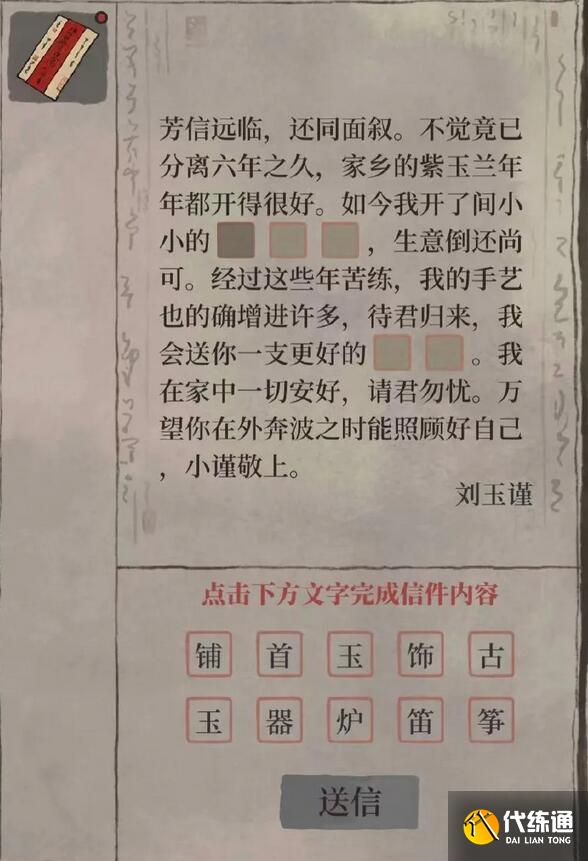 芳信远临，还同面叙。不觉竟已
分离六年之久，家乡的紫玉兰年
年都开得很好。如今我开了间小
小的，生意倒还尚
可。经过这些年苦练，我的手艺
也的确增进许多，待君归来，我
会送你一支更好的。我
在家中一切安好，请君勿忧。万
望你在外奔波之时能照顾好自己
，小谨敬上。
刘玉谨
点击下方文字完成信件内容
铺 首 玉 饰 古
玉 器 炉 笛 筝
送信
代练通
DAI LIAN TONG